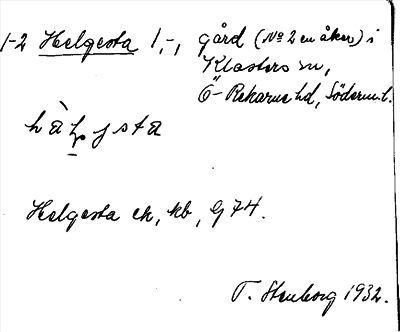 1-2 Helgesta 1,-, gård (No 2 en åker) i
Klosters sn,
Ö-Rekarne hd, Söderml.
Helgesta ek, kb, G 74.
T. Stenborg 1932.